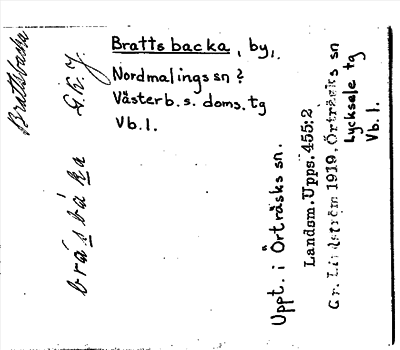 Brattsbacka
bråsbáka G.K.J.
Brattsbacka, by,
Nordmalings sn ?
Västerb.s. doms.tg
Vb.l.
Uppt. i Örträsks sn.
Landsm.Upps.455:2
Gr. Lindström 1919, Örträsks sn
Lycksele tg
Vb.l.